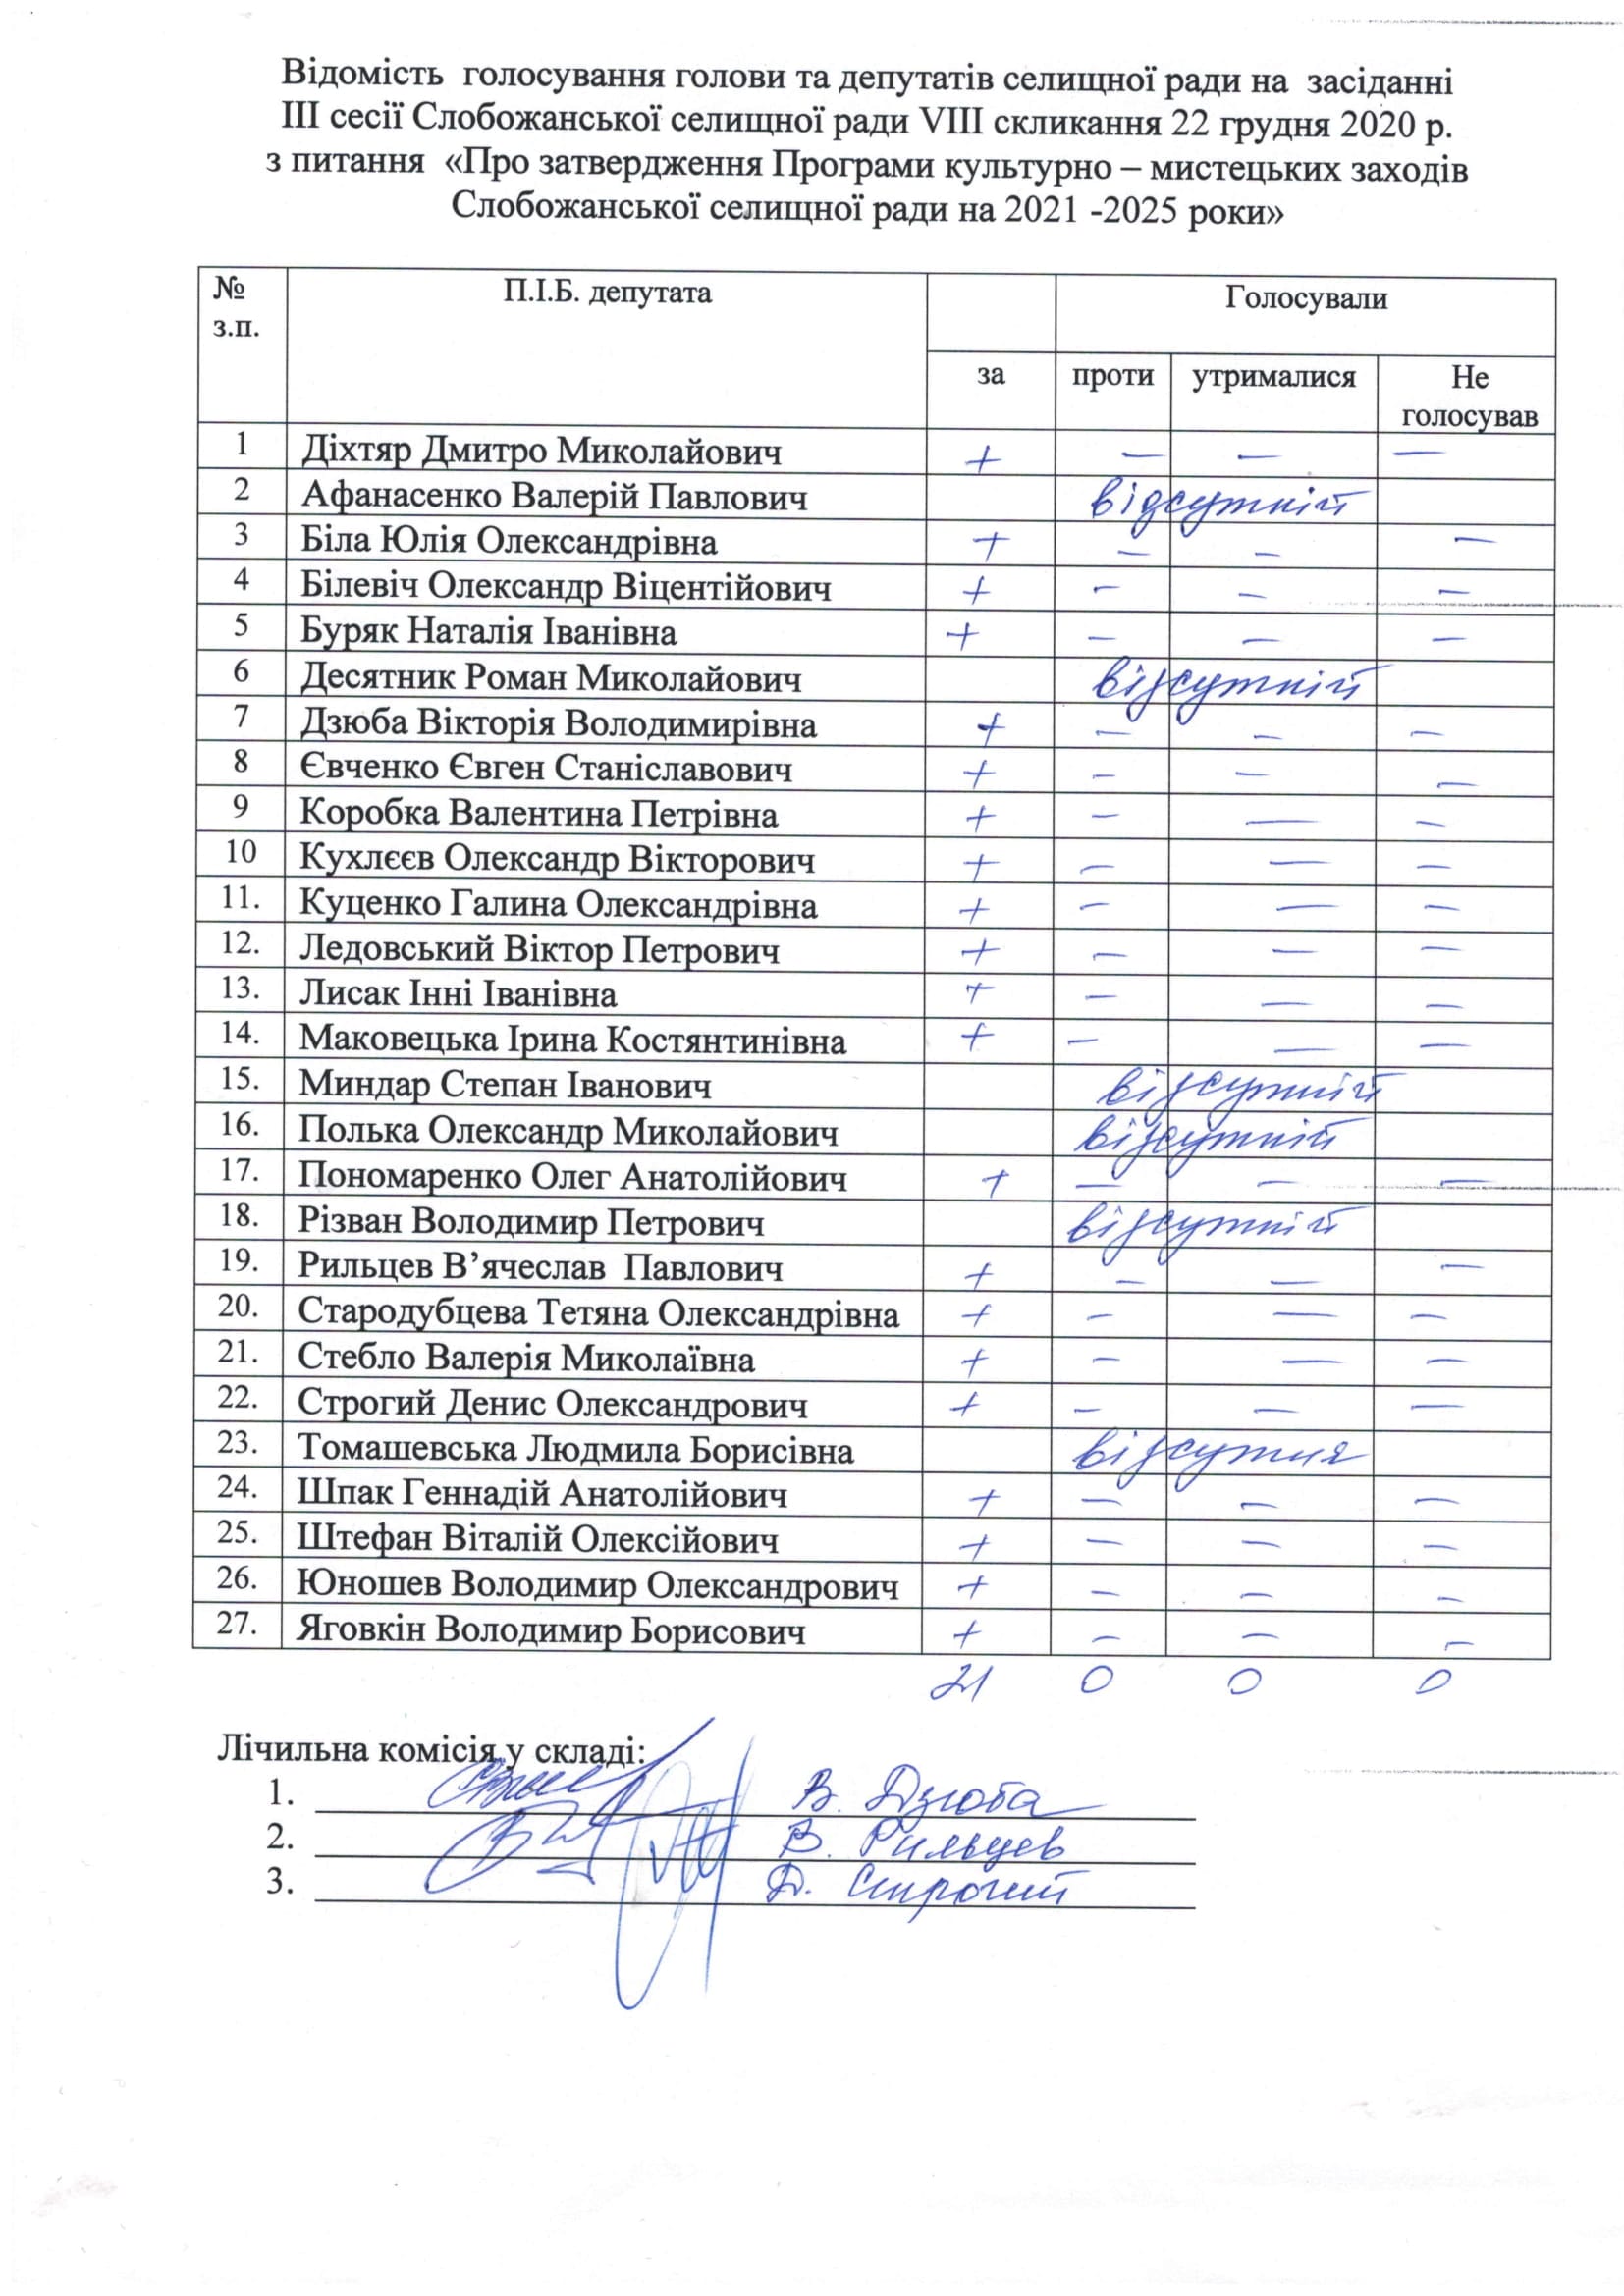 Відомість голосування голови та депутатів селищної ради на засіданні
ІІІ сесії Слобожанської селищної ради VIII скликання 22 грудня 2020 р.
з питання «Про затвердження Програми культурно – мистецьких заходів
Слобожанської селищної ради на 2021 -2025 роки»
№ з.п. П.І.Б. депутата Голосували
за проти утрималися Не голосував
1 Діхтяр Дмитро Миколайович + — — —
2 Афанасенко Валерій Павлович відсутній
3 Біла Юлія Олександрівна + — — —
4 Білевіч Олександр Віцентійович + — — —
5 Буряк Наталія Іванівна + — — —
6 Десятник Роман Миколайович відсутній
7 Дзюба Вікторія Володимирівна + — — —
8 Євченко Євген Станіславович + — — —
9 Коробка Валентина Петрівна + — — —
10 Кухлєєв Олександр Вікторович + — — —
11. Куценко Галина Олександрівна + — — —
12. Ледовський Віктор Петрович + — — —
13. Лисак Інні Іванівна + — — —
14. Маковецька Ірина Костянтинівна + — — —
15. Миндар Степан Іванович відсутній
16. Полька Олександр Миколайович відсутній
17. Пономаренко Олег Анатолійович + — — —
18. Різван Володимир Петрович відсутній
19. Рильцев В’ячеслав Павлович + — — —
20. Стародубцева Тетяна Олександрівна + — — —
21. Стебло Валерія Миколаївна + — — —
22. Строгий Денис Олександрович + — — —
23. Томашевська Людмила Борисівна відсутня
24. Шпак Геннадій Анатолійович + — — —
25. Штефан Віталій Олексійович + — — —
26. Юношев Володимир Олександрович + — — —
27. Яговкін Володимир Борисович + — — —
21 0 0 0
Лічильна комісія у складі:
1. В. Дзюба
2. В. Рильцев
3. Д. Строгий